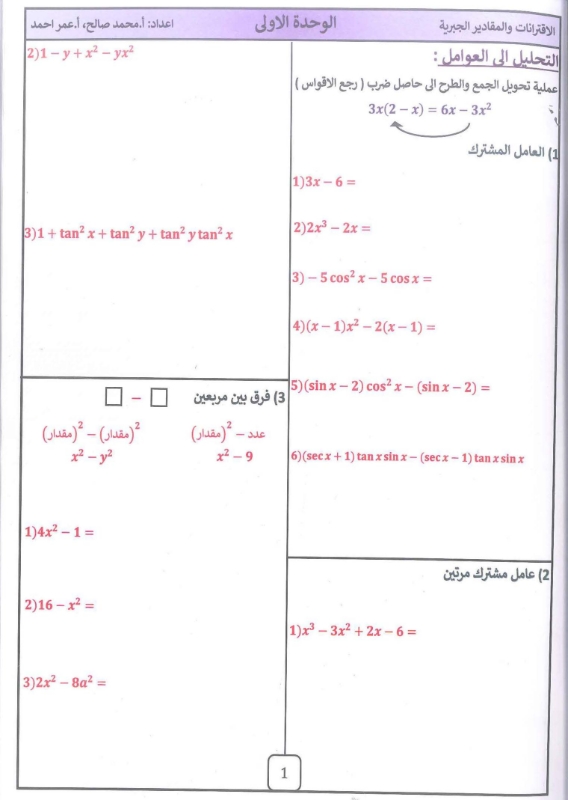 الاقترانات والمقادير الجبرية
الوحدة الاولى
اعداد: أ.محمد صالح، أ.عمر احمد
التحليل الى العوامل :
عملية تحويل الجمع والطرح الى حاصل ضرب ( رجع الاقواس )
3x(2 − x) = 6x − 3x²
1) العامل المشترك
1)3x − 6 =
2)2x³ − 2x =
3) − 5 cos² x − 5 cos x =
4)(x − 1)x² − 2(x − 1) =
5)(sin x − 2) cos² x − (sin x − 2) =
6)(sec x + 1) tan x sin x − (sec x − 1) tan x sin x
2) عامل مشترك مرتين
1)x³ − 3x² + 2x − 6 =
2)1 − y + x² − yx²
3)1 + tan² x + tan² y + tan² y tan² x
3) فرق بين مربعين □ − □
(مقدار)² − عدد
(مقدار)² − (مقدار)²
x² − 9
x² − y²
1)4x² − 1 =
2)16 − x² =
3)2x² − 8a² =
1